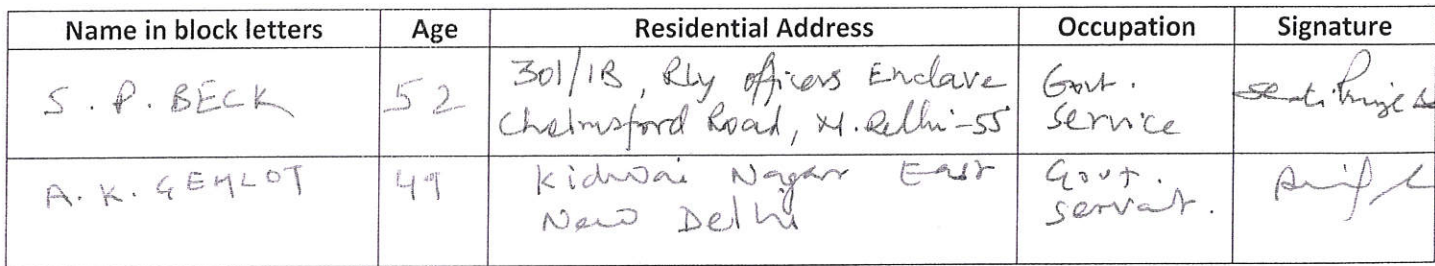 Name in block letters Age Residential Address Occupation Signature
S. P. BECK 52 301/1B, Rly officers Enclave Govt.
Chelmsford Road, N. Delhi-55 Service
A. K. GEHLOT 49 Kidwai Nagar East Govt.
New Delhi Servant.